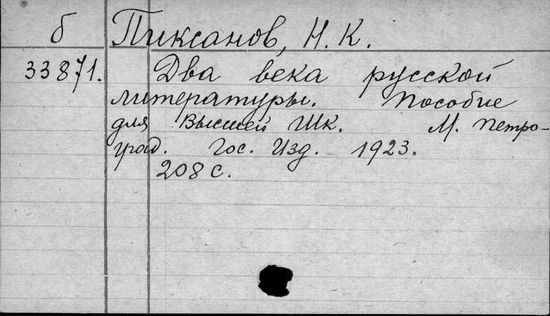 б Пиксанов, Н. К.
33871. Два века русской
литературы. Пособие
для Высшей Шк. М. Петро-
град. Гос. Изд. 1923.
208 с.